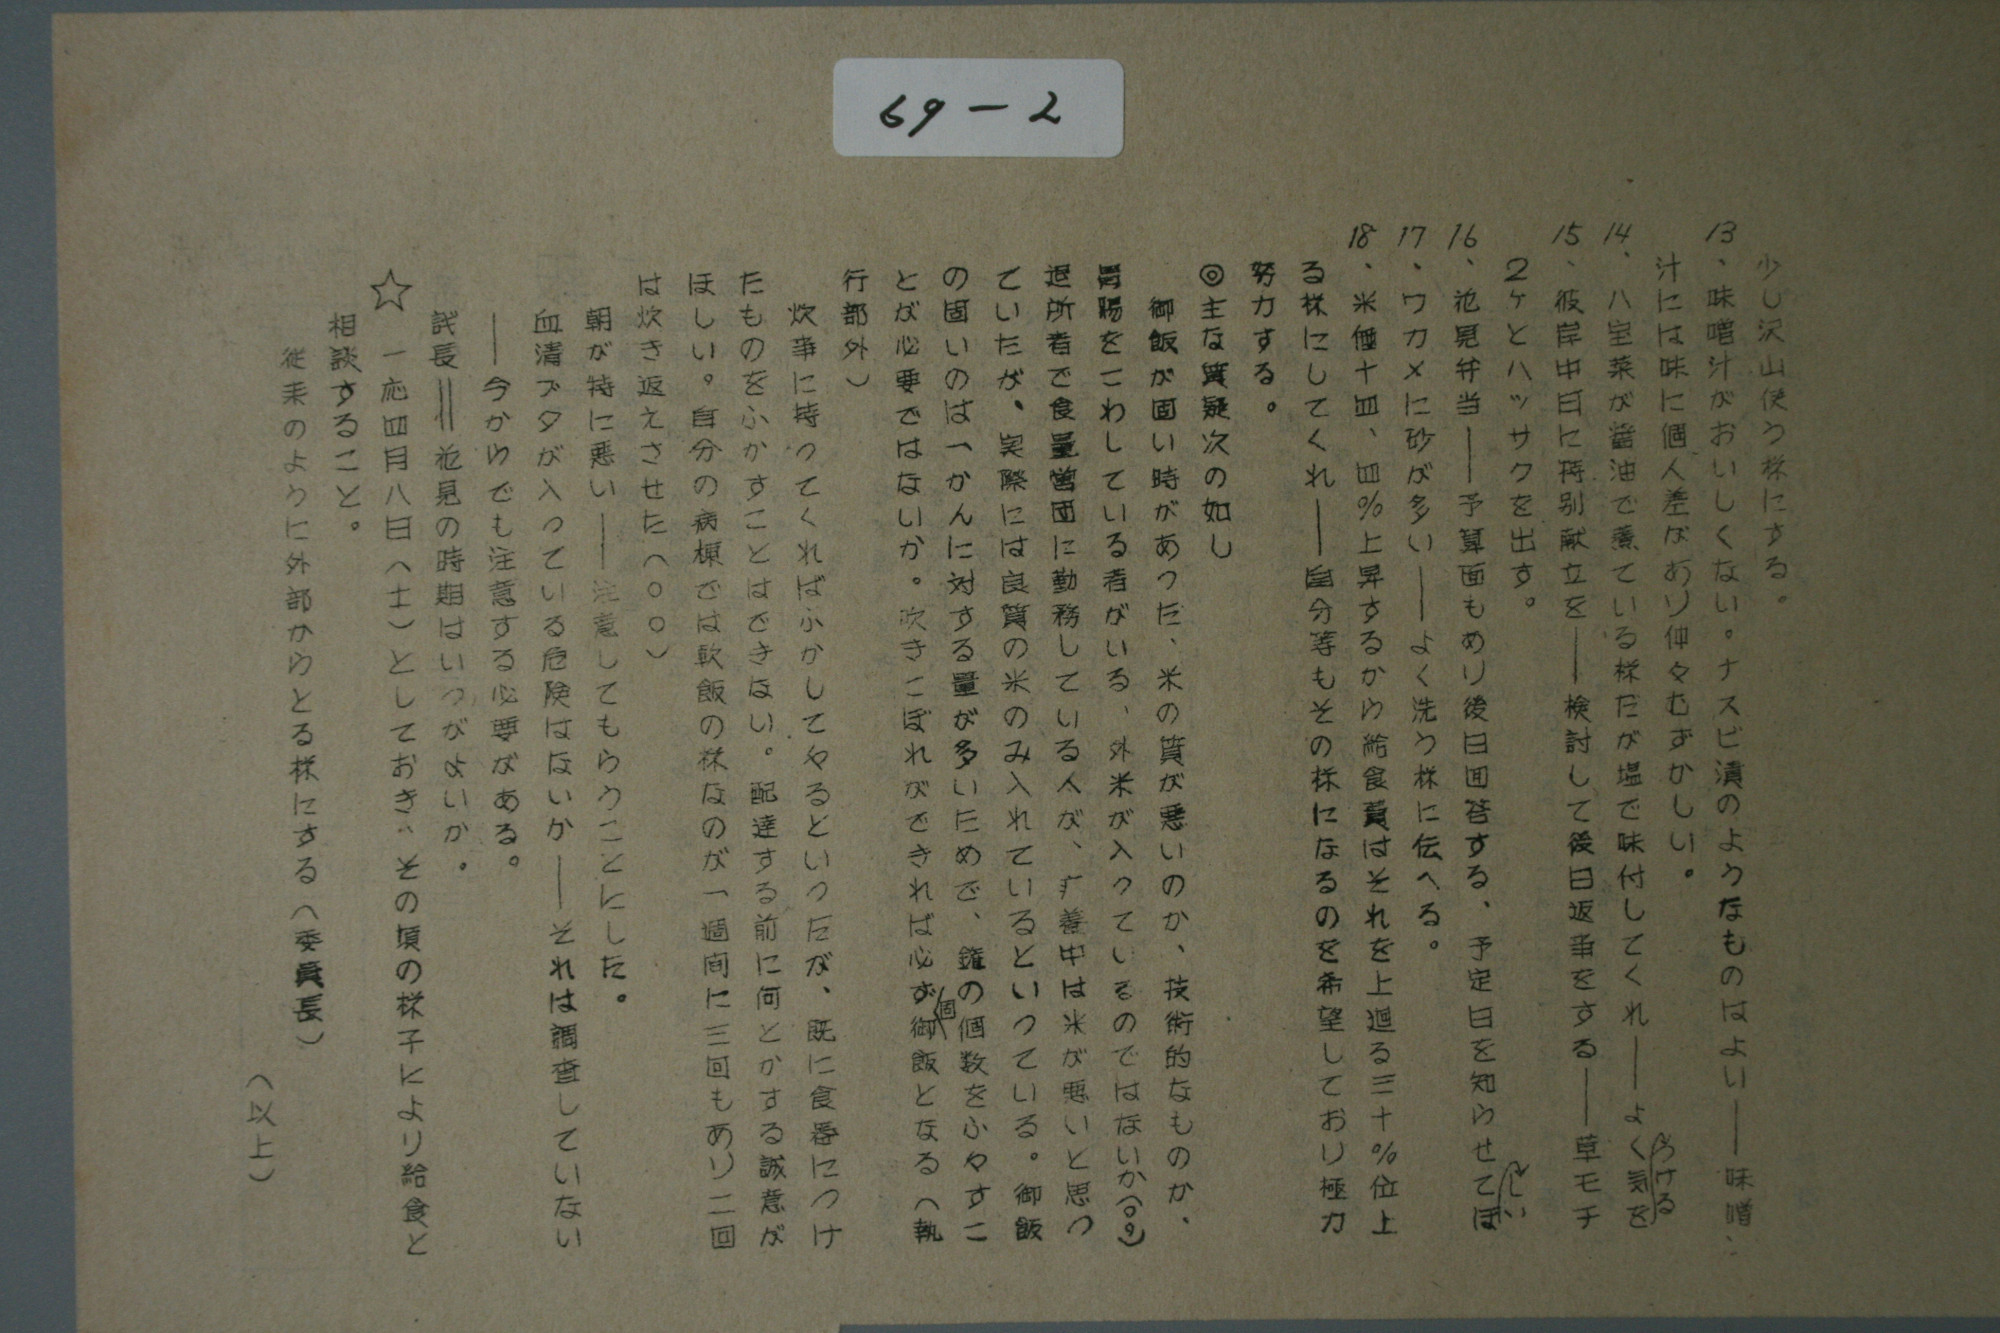 69-2
少し沢山使う様にする。
13、味噌汁がおいしくない。ナスビ漬のようなものはよい——味噌
汁には味に個人差があり仲々むずかしい。
14、八宝菜が醤油で煮ている様だが塩で味付してくれ——よく気を
つける
15、彼岸中日に特別献立を——検討して後日返事をする——草モチ
2ケとハッサクを出す。
16、花見弁当——予算面もあり後日回答する、予定日を知らせてほ
しい
17、ワカメに砂が多い——よく洗う様に伝へる。
18、米価十四、四%上昇するから給食費はそれを上廻る三十%位上
る様にしてくれ——自分等もその様になるのを希望しており極力
努力する。
◎主な質疑次の如し
御飯が固い時があった、米の質が悪いのか、技術的なものか、
胃腸をこわしている者がいる、外米が入っているのではないか(〇〇)
退所者で食量営団に勤務している人が、療養中は米が悪いと思っ
ていたが、実際には良質の米のみ入れているといっている。御飯
の固いのは一かんに対する量が多いためで、鑵の個数をふやすこ
とが必要ではないか。吹きこぼれができれば必ず固御飯となる(執
行部外)
炊事に持ってくればふかしてやるといったが、既に食器につけ
たものをふかすことはできない。配達する前に何とかする誠意が
ほしい。自分の病棟では軟飯の様なのが一週間に三回もあり二回
は炊き返えさせた(〇〇)
朝が特に悪い——注意してもらうことにした。
血清ブタが入っている危険はないか——それは調査していない
——今からでも注意する必要がある。
議長‖花見の時期はいつがよいか。
☆一応四月八日(土)としておき、その頃の様子により給食と
相談すること。
従来のように外部からとる様にする(委員長)
(以上)